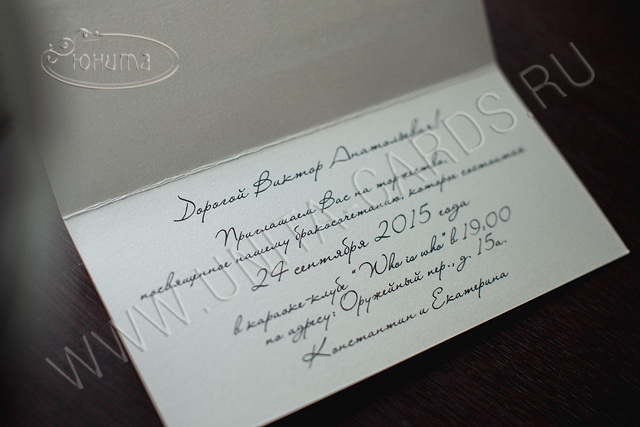 Юнита
Дорогой Виктор Анатольевич!
Приглашаем Вас на торжество,
посвящённое нашему бракосочетанию, которое состоится
24 сентября 2015 года
в караоке-клубе "Who is who" в 19.00
по адресу: Оружейный пер., д. 15а.
Константин и Екатерина
WWW.UNITA-CARDS.RU